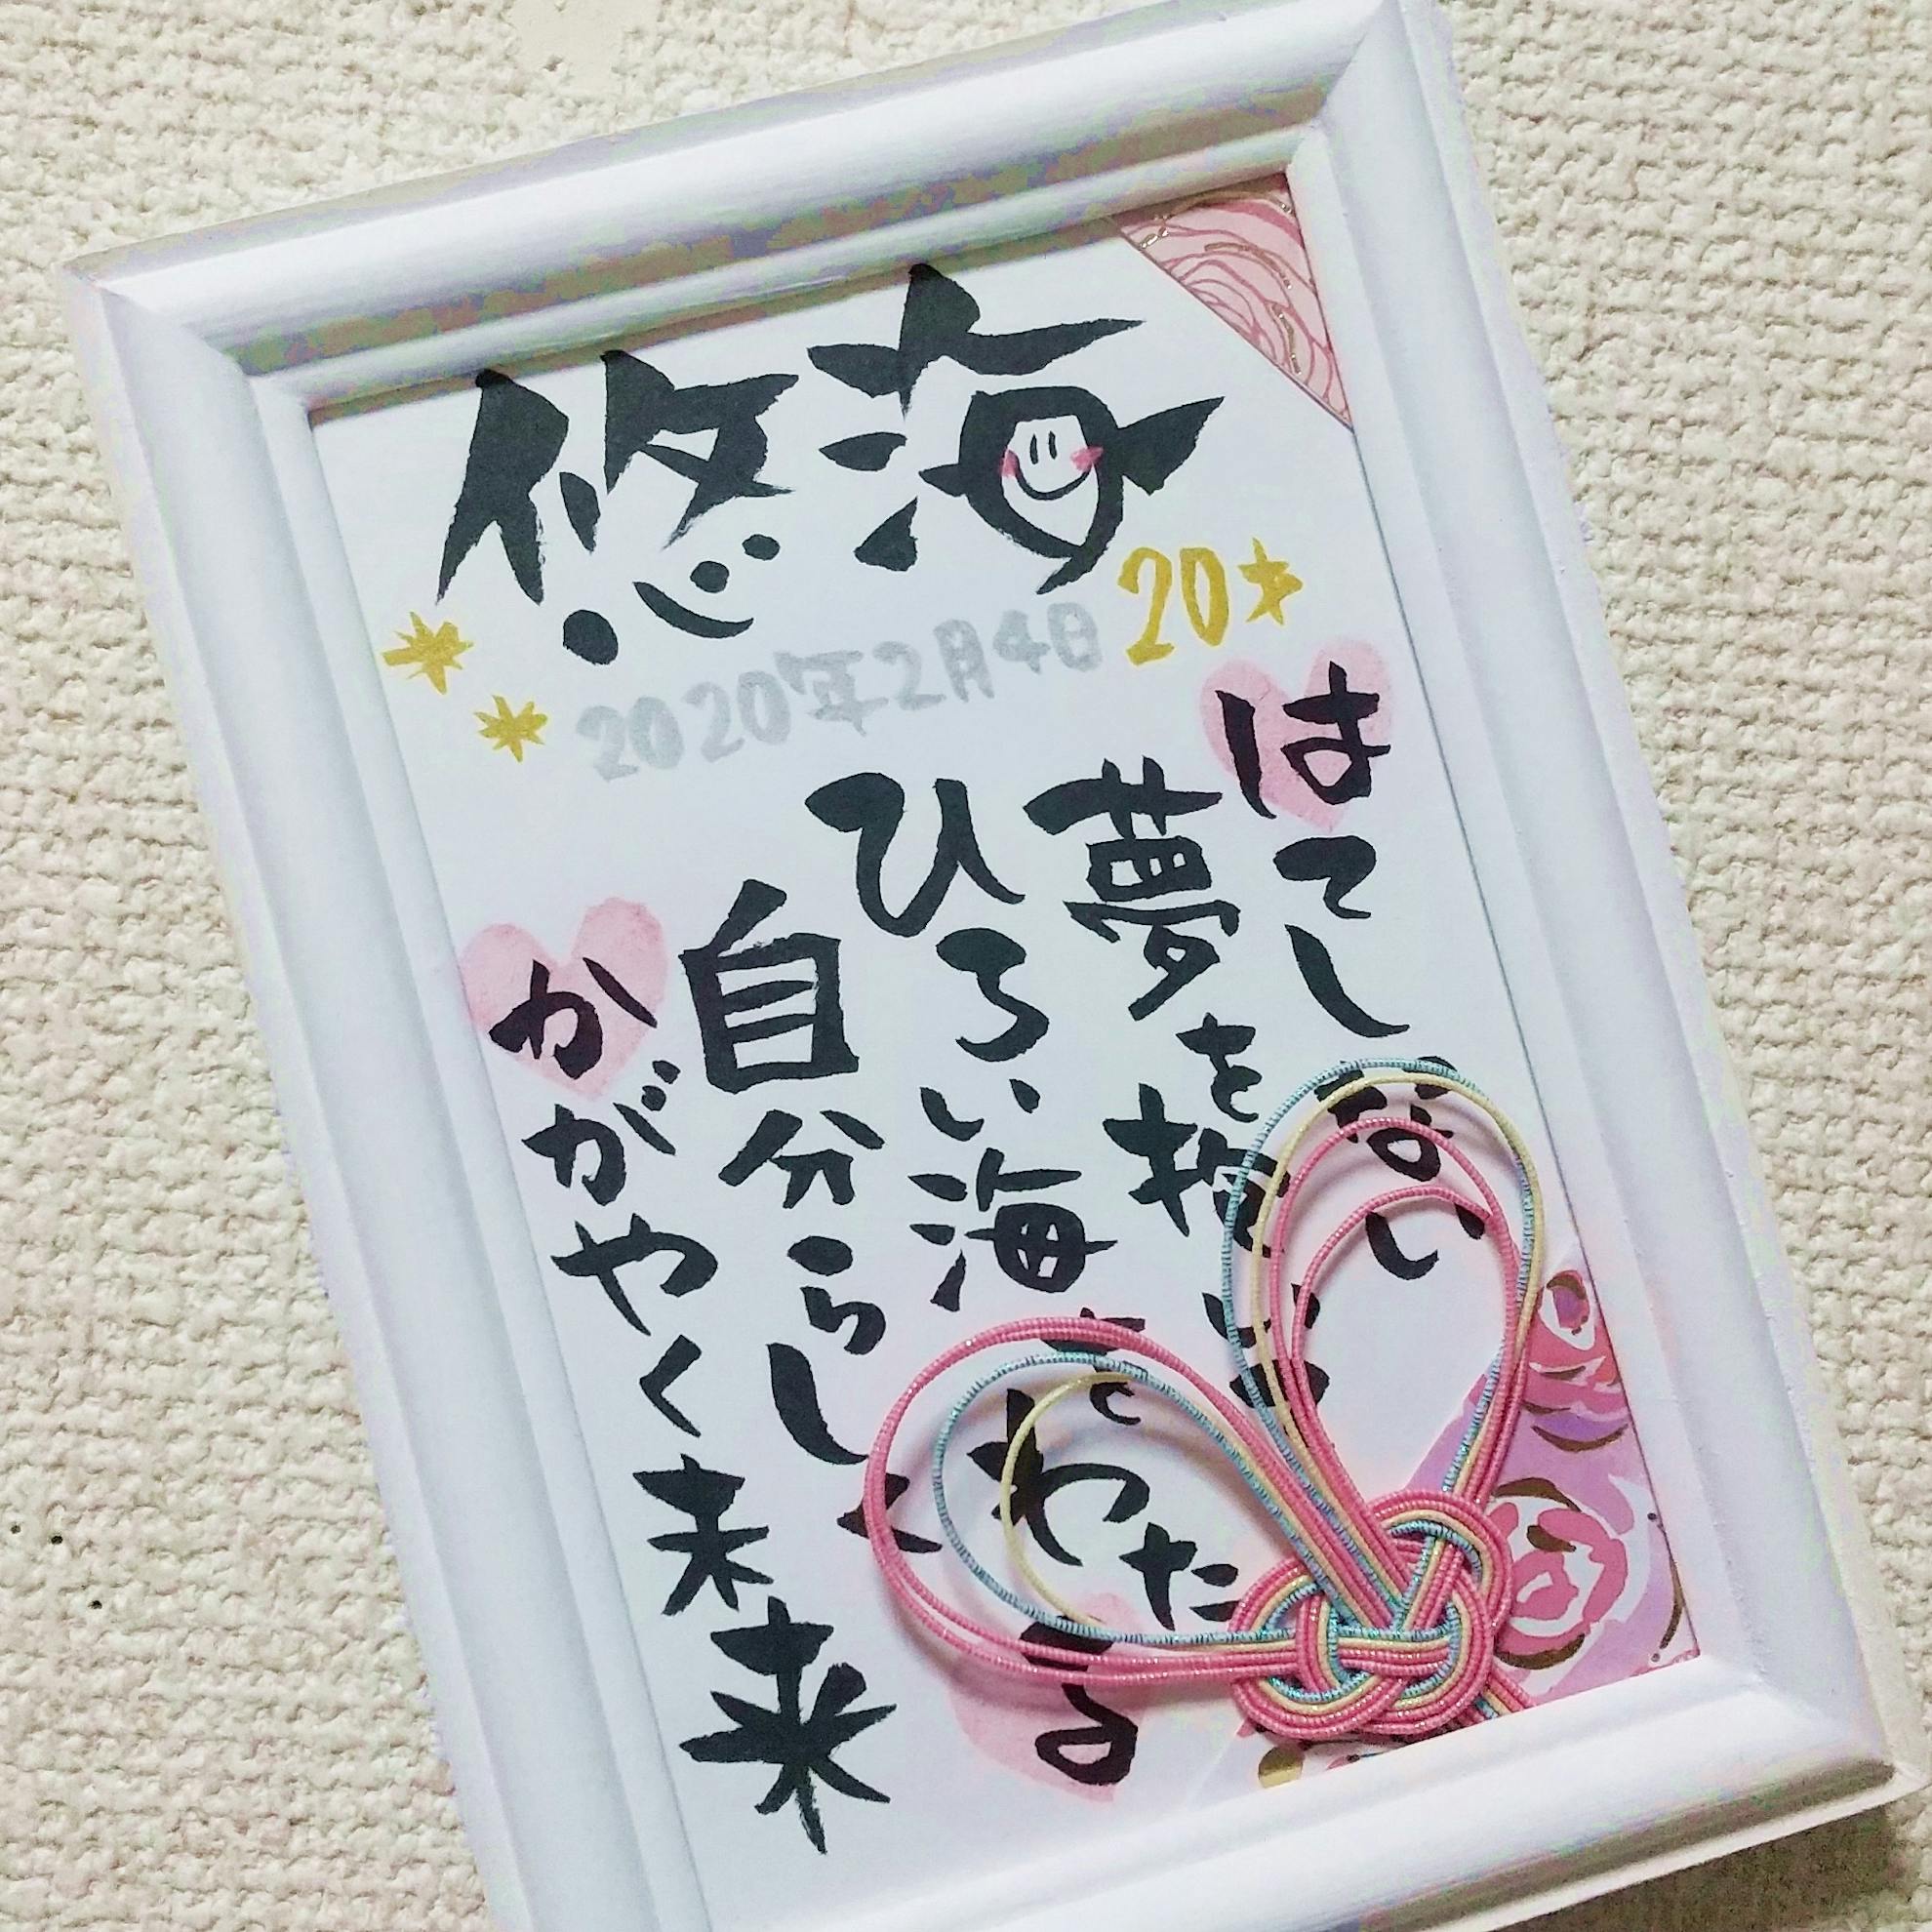 悠海
2020年2月4日 20
はてしない
夢を抱
ひろい海をわたる
自分らしく
かがやく未来